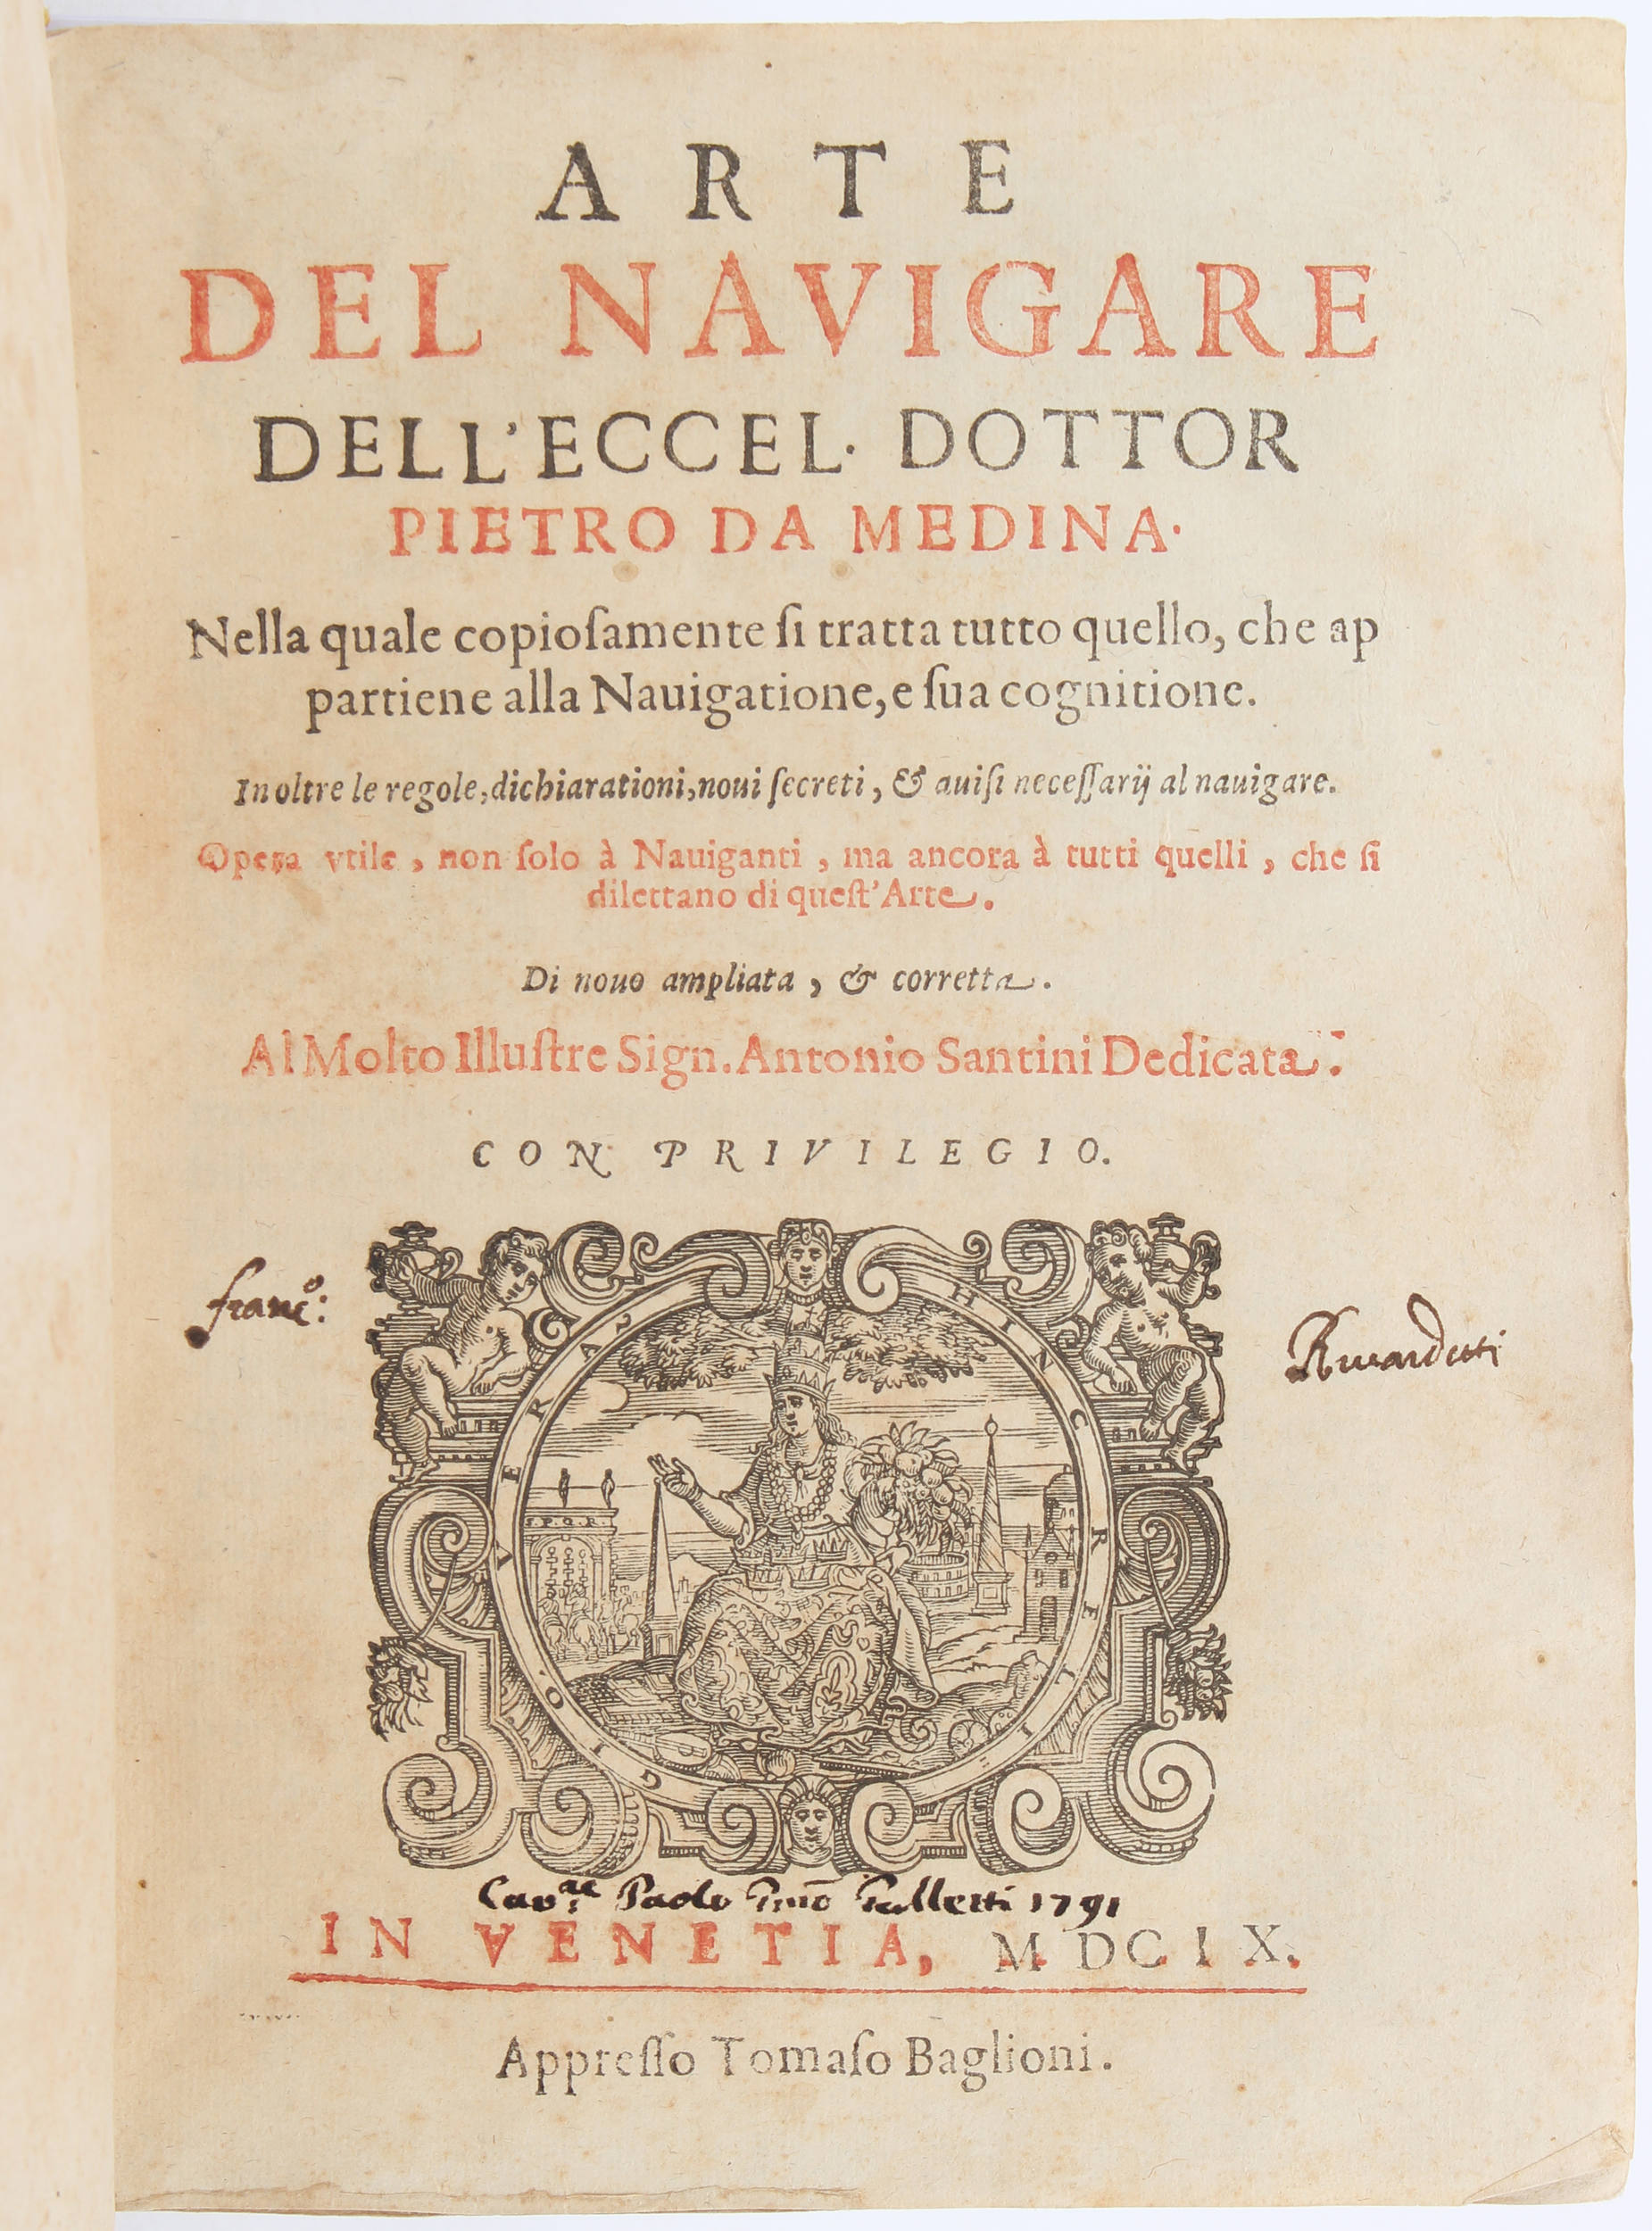 ARTE
DEL NAVIGARE
DELL'ECCEL. DOTTOR
PIETRO DA MEDINA.
Nella quale copioſamente ſi tratta tutto quello, che ap
partiene alla Nauigatione, e ſua cognitione.
In oltre le regole, dichiarationi, noui ſecreti, & auiſi neceſſarij al nauigare.
Opera vtile, non ſolo à Nauiganti, ma ancora à tutti quelli, che ſi
dilettano di queſt'Arte.
Di nouo ampliata, & corretta.
Al Molto Illuſtre Sign. Antonio Santini Dedicata.
CON PRIVILEGIO.
franc.º:
HINC RELIG
GIÓ VERA
S.P.Q.R.
Cav.re Paolo Galletti 1791
IN VENETIA, MDCIX.
Appreſſo Tomaſo Baglioni.